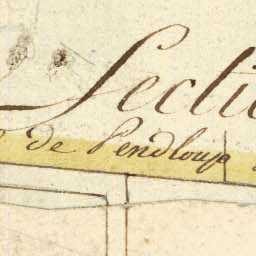 Secti
de Pendloup